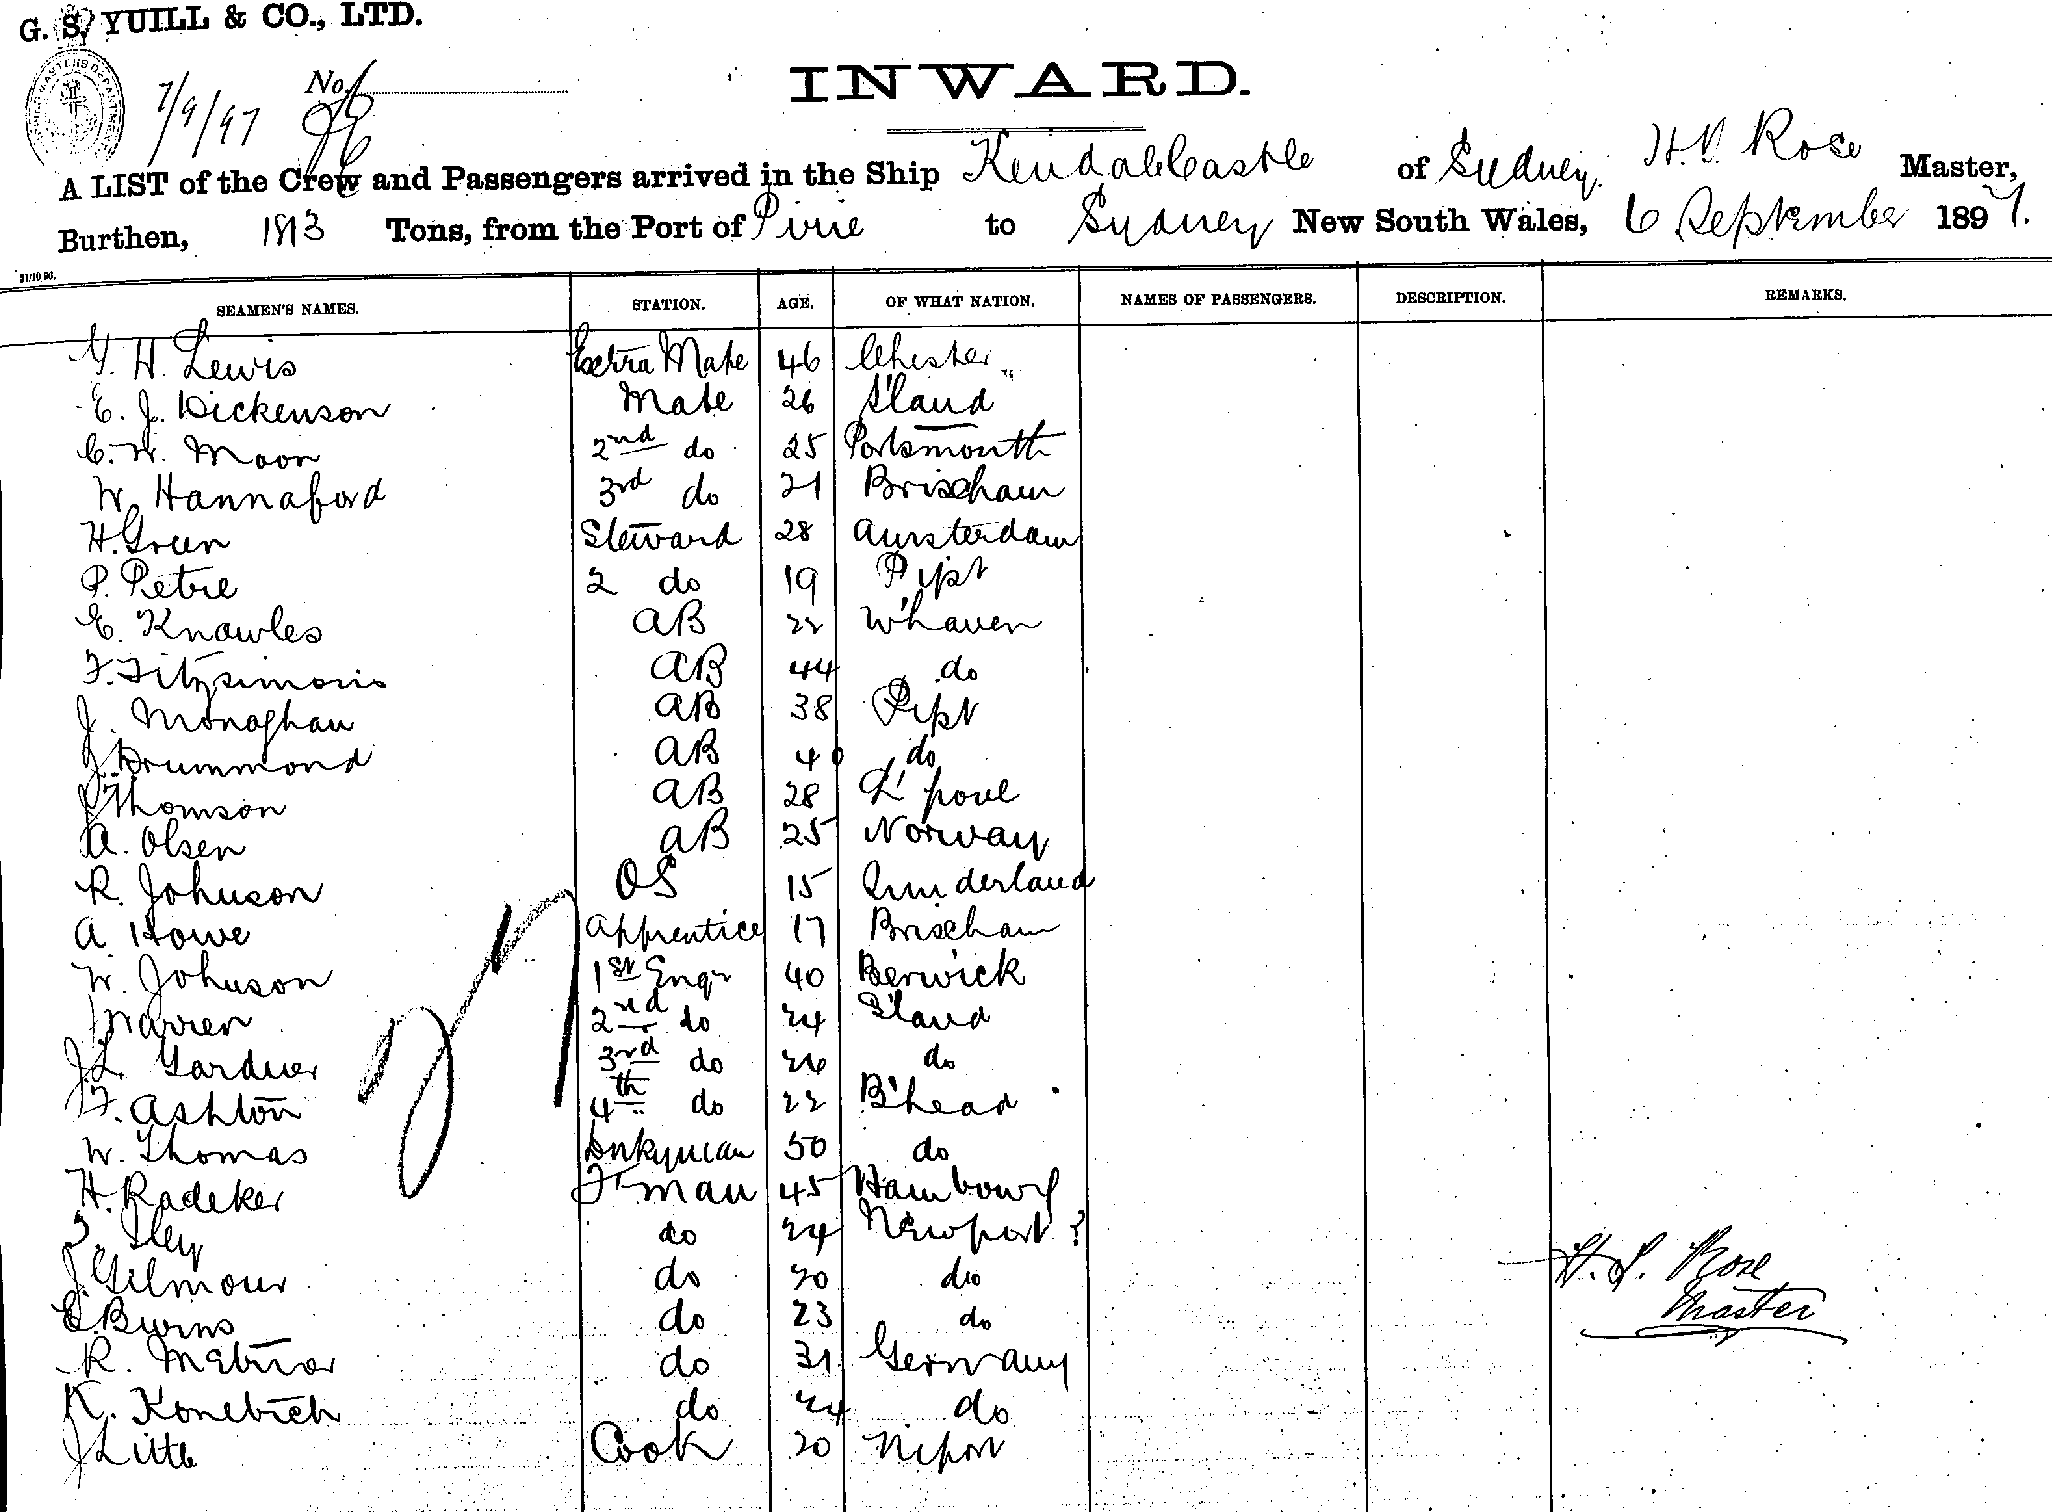 G. S. YUILL & CO., LTD.
7/9/97 No.
INWARD.
A LIST of the Crew and Passengers arrived in the Ship Kendal Castle of Sydney. H. S. Rose Master,
Burthen, Tons, from the Port of Pirie to Sydney New South Wales, 6 September 1897.
31/10 96.
SEAMEN'S NAMES. STATION. AGE. OF WHAT NATION. NAMES OF PASSENGERS. DESCRIPTION. REMARKS.
H. Lewis Extra Mate 46 Chester
E. J. Dickenson Mate 26 S'land
C. W. Moon 2nd do 25 Portsmouth
W. Hannaford 3rd do 21 Brixham
H. Green Steward 28 Amsterdam
P. Petrie 2 do 19
E. Knowles AB 22 W'haven
F. Fitzsimons AB 44 do
J. Monaghan AB 38
J. Drummond AB 40 do
J Thomson AB 28 L'pool
A. Olsen AB 25 Norway
R. Johnson OS 15 Sunderland
A Howe Apprentice 17 Brixham
W. Johnson 1st Engr 40 Berwick
J Warren 2nd do 24 S'land
J. L. Gardner 3rd do 26 do
F. Ashton 4th do 22 B'head
W. Thomas Dnkyman 50 do
H. Radeker F'man 45 Hambourg
Sley do 24 Newport ?
J. Gilmour do 20 do
E. Burns do 23 do
R. do 31 Germany
K. do 24 do
J Little Cook 20 Nport
H. S. Rose
Master